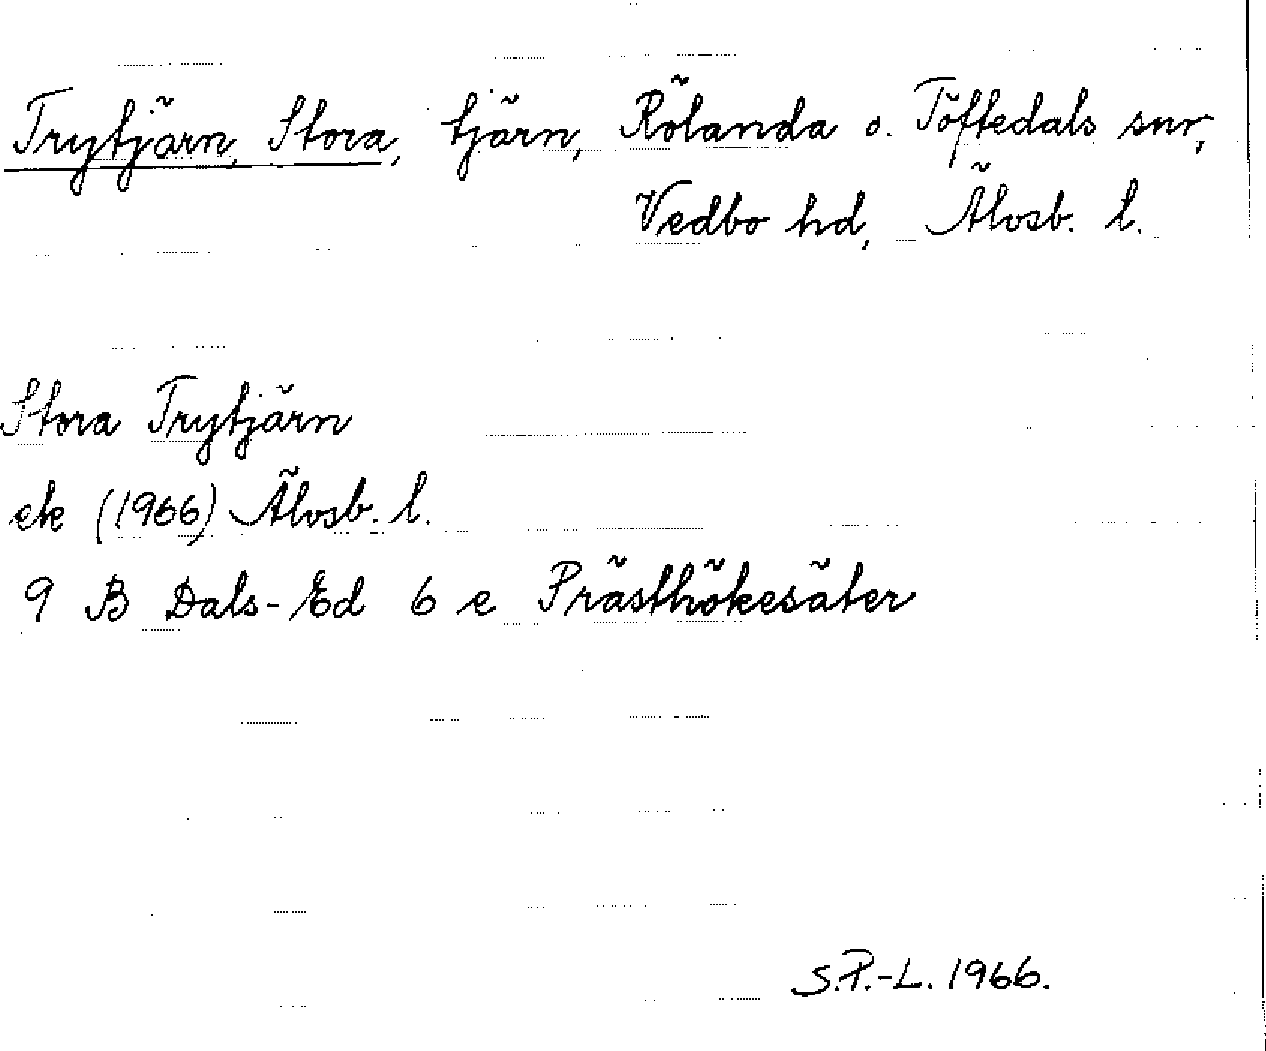 Trytjärn, Stora, tjärn, Rölanda o. Töftedals snr,
Vedbo hd, Älvsb. l.
Stora Trytjärn
ek (1966) Älvsb. l.
9 B Dals-Ed 6 e Prästhökesäter
S.P.-L. 1966.